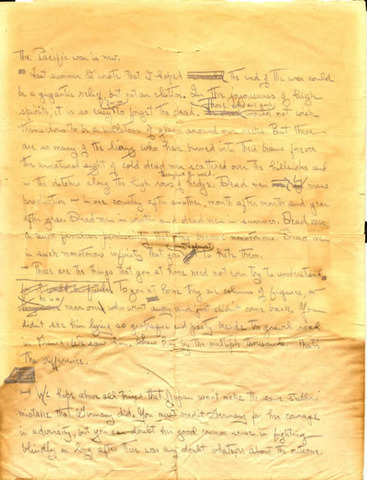 The Pacific war is near.
Last summer I wrote that I hoped the end of the war could
be a gigantic relief, but not an elation. In the joyousness of high
spirits, it is so easy to forget the dead. Those who are gone would not wish
themselves to be a millstone of gloom around our necks. But there
are so many of the living who have burned into their brains forever
the unnatural sight of cold dead men scattered over the hillsides and
in the ditches along the high rows of hedge throughout the world. Dead men by mass
production - in one country after another, month after month and year
after year. Dead men in winter and dead men in summer. Dead men
in such familiar promiscuity that they become monotonous. Dead men
in such monstrous infinity that you come almost to hate them.
- Those are the things that you at home need not even try to understand.
To you at home they are columns of figures, or
he is a near one who went away and just didn't come back. You
didn't see him lying so grotesque and pasty beside the gravel road
in France. We saw him. Saw him by the multiple thousands. That's
the difference.
- We hope above all things that Japan won't make the same stubborn
mistake that Germany did. You must credit Germany for her courage
in adversity, but you can doubt her good common sense in fighting
blindly on long after there was any doubt whatever about the outcome.